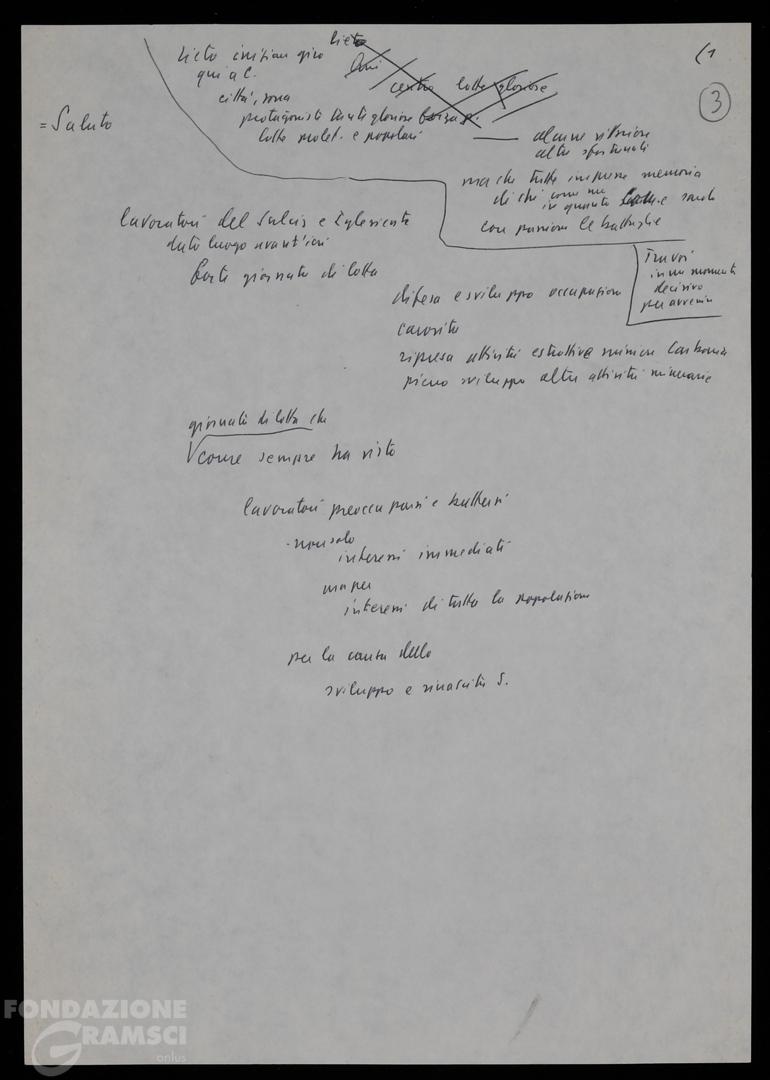 (1
3
= Saluto
Lieto iniziare giro
qui a C.
città, zona
protagonista tante gloriose
lotte prolet. e popolari
Lieto
Qui
centro lotte gloriose
alcune vittoriose
altre sfortunate
ma che tutte impresse memoria
di chi come me
in quanto sardo
con passione le battaglie
Tra voi
in un momento
decisivo
per avvenire
lavoratori del Sulcis e Iglesiente
dato luogo avant'ieri
forte giornata di lotta
difesa e sviluppo occupazione
carovita
ripresa attività estrattiva miniere Carbonia
pieno sviluppo altre attività minerarie
giornata di lotta che
come sempre ha visto
lavoratori preoccuparsi e battersi
- non solo
interessi immediati
ma per
interessi di tutta la popolazione
per la causa dello
sviluppo e rinascita S.
FONDAZIONE
GRAMSCI
onlus